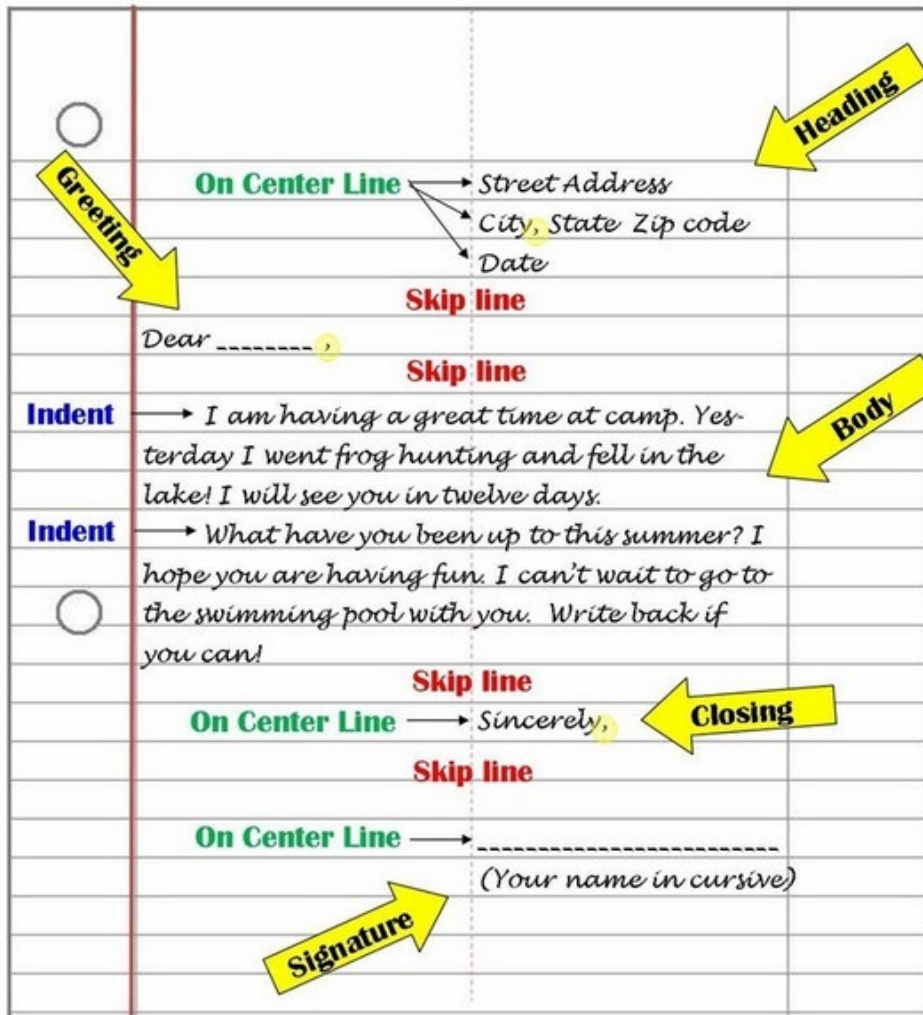 Heading
Greeting
On Center Line Street Address
City, State Zip code
Date
Skip line
Dear ________ ,
Skip line
Indent I am having a great time at camp. Yes-
terday I went frog hunting and fell in the
lake! I will see you in twelve days.
Body
Indent What have you been up to this summer? I
hope you are having fun. I can't wait to go to
the swimming pool with you. Write back if
you can!
Skip line
On Center Line Sincerely,
Closing
Skip line
On Center Line _________________________
(Your name in cursive)
Signature